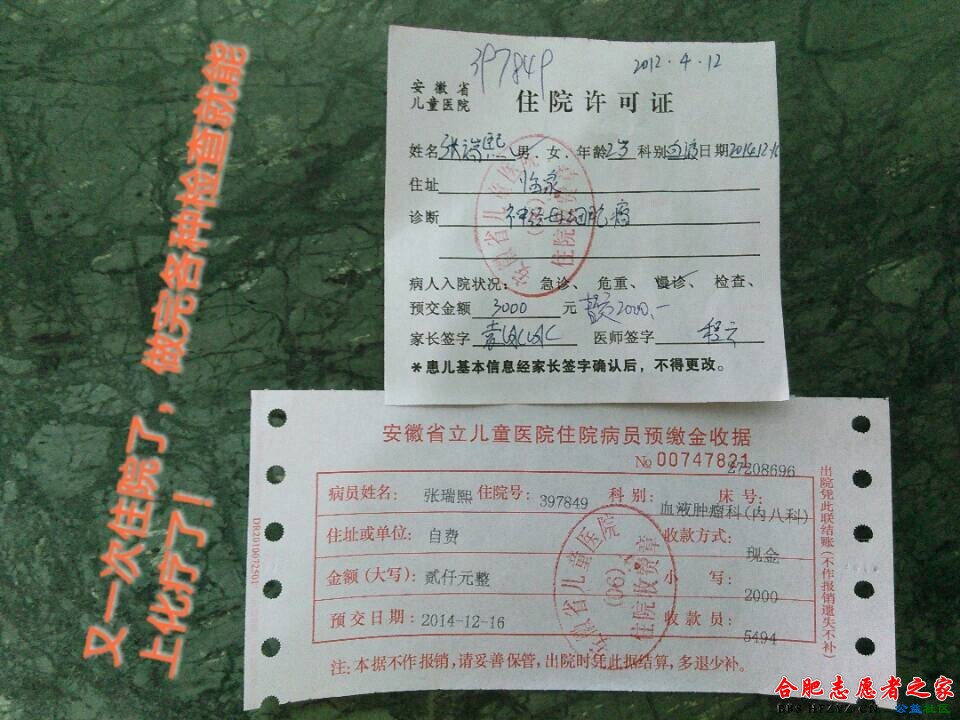 397849
2012.4.12
安徽省
儿童医院
住院许可证
姓名 张瑞熙 男、女、年龄 2岁 科别 血液 日期 2014.12.16
住址 临泉
诊断 神经母细胞瘤
病人入院状况: 急诊、 危重、 慢诊、 检查、
预交金额 3000 元 2000.-
家长签字 医师签字 程云
*患儿基本信息经家长签字确认后,不得更改。
安徽省儿童医院
(06)
住院收费章
安徽省立儿童医院住院病员预缴金收据
№ 00747821
27208696
病员姓名: 张瑞熙 住院号: 397849 科别: 血液肿瘤科(内八科) 床号:
住址或单位: 自费 收款方式: 现金
金额(大写): 贰仟元整 小写: 2000
预交日期: 2014-12-16 收款员: 5494
注:本据不作报销,请妥善保管,出院时凭此据结算,多退少补。
出院凭此联结账(不作报销遗失不补)
DR2010072501
安徽省儿童医院
(06)
住院收费章
又一次住院了,做完各种检查就能
上化疗了!
合肥志愿者之家
BBS.HFVZY.CN 公益社区